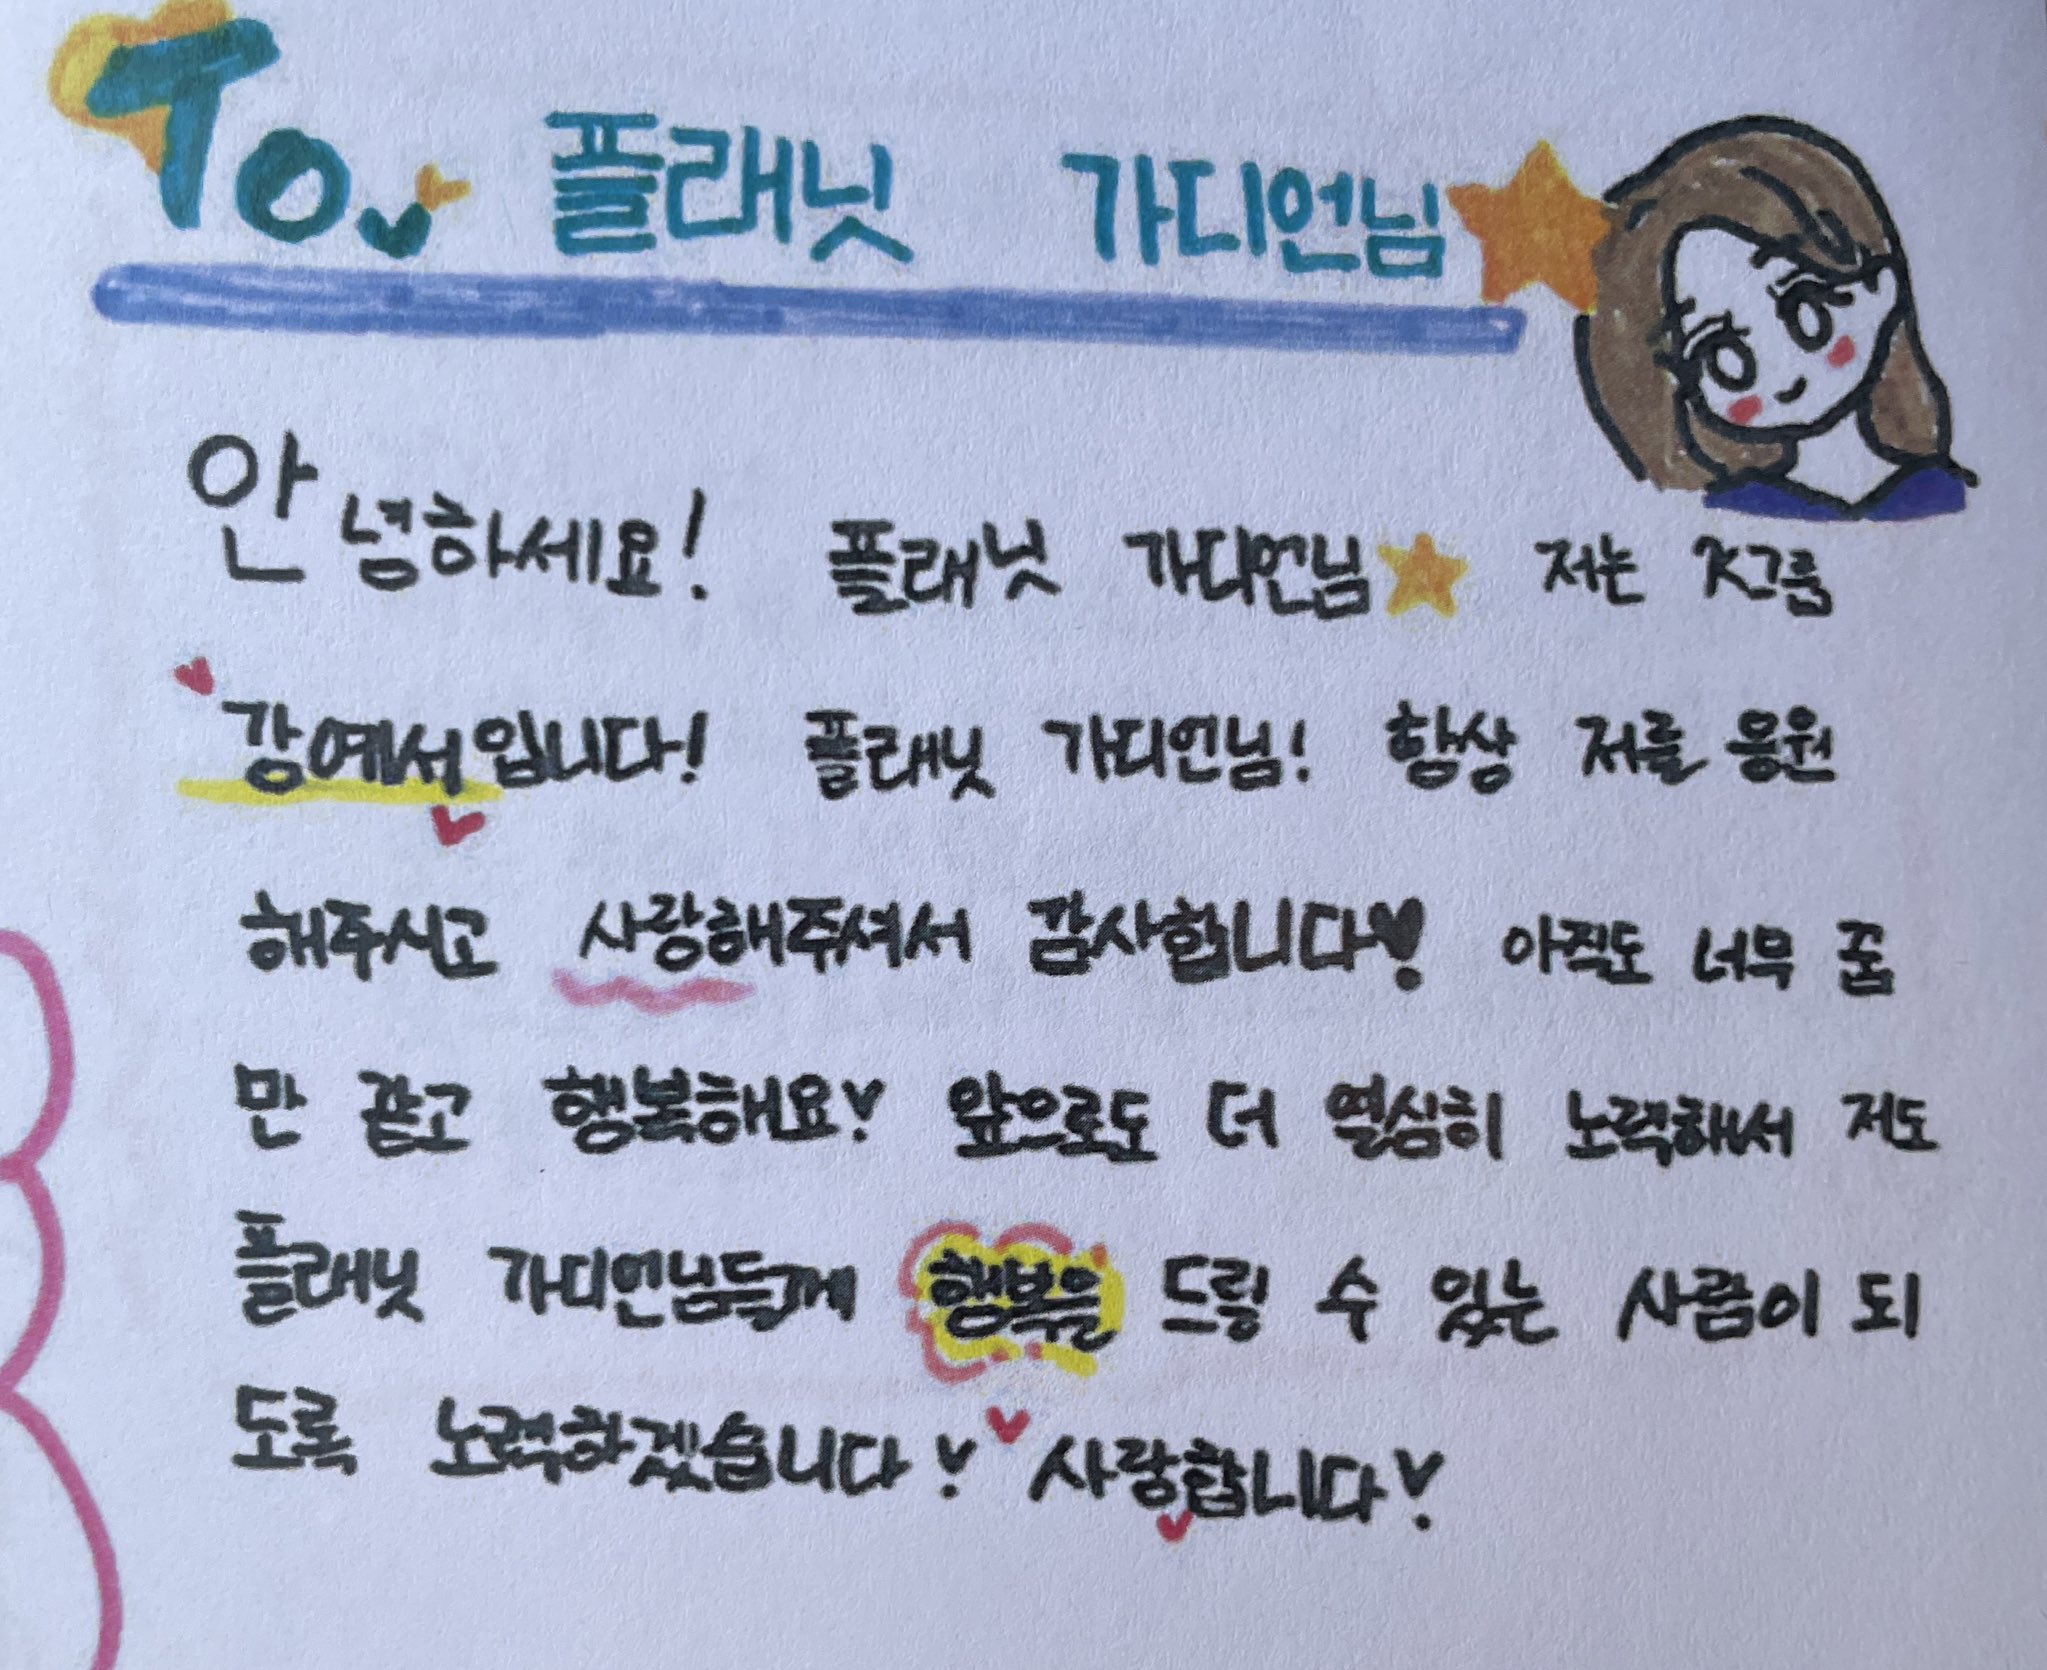 To. 플래닛 가디언님
안녕하세요! 플래닛 가디언님 저는 K그룹
강예서입니다! 플래닛 가디언님! 항상 저를 응원
해주시고 사랑해주셔서 감사합니다! 아직도 너무 꿈
만 같고 행복해요! 앞으로도 더 열심히 노력해서 저도
플래닛 가디언님들께 행복을 드릴 수 있는 사람이 되
도록 노력하겠습니다! 사랑합니다!